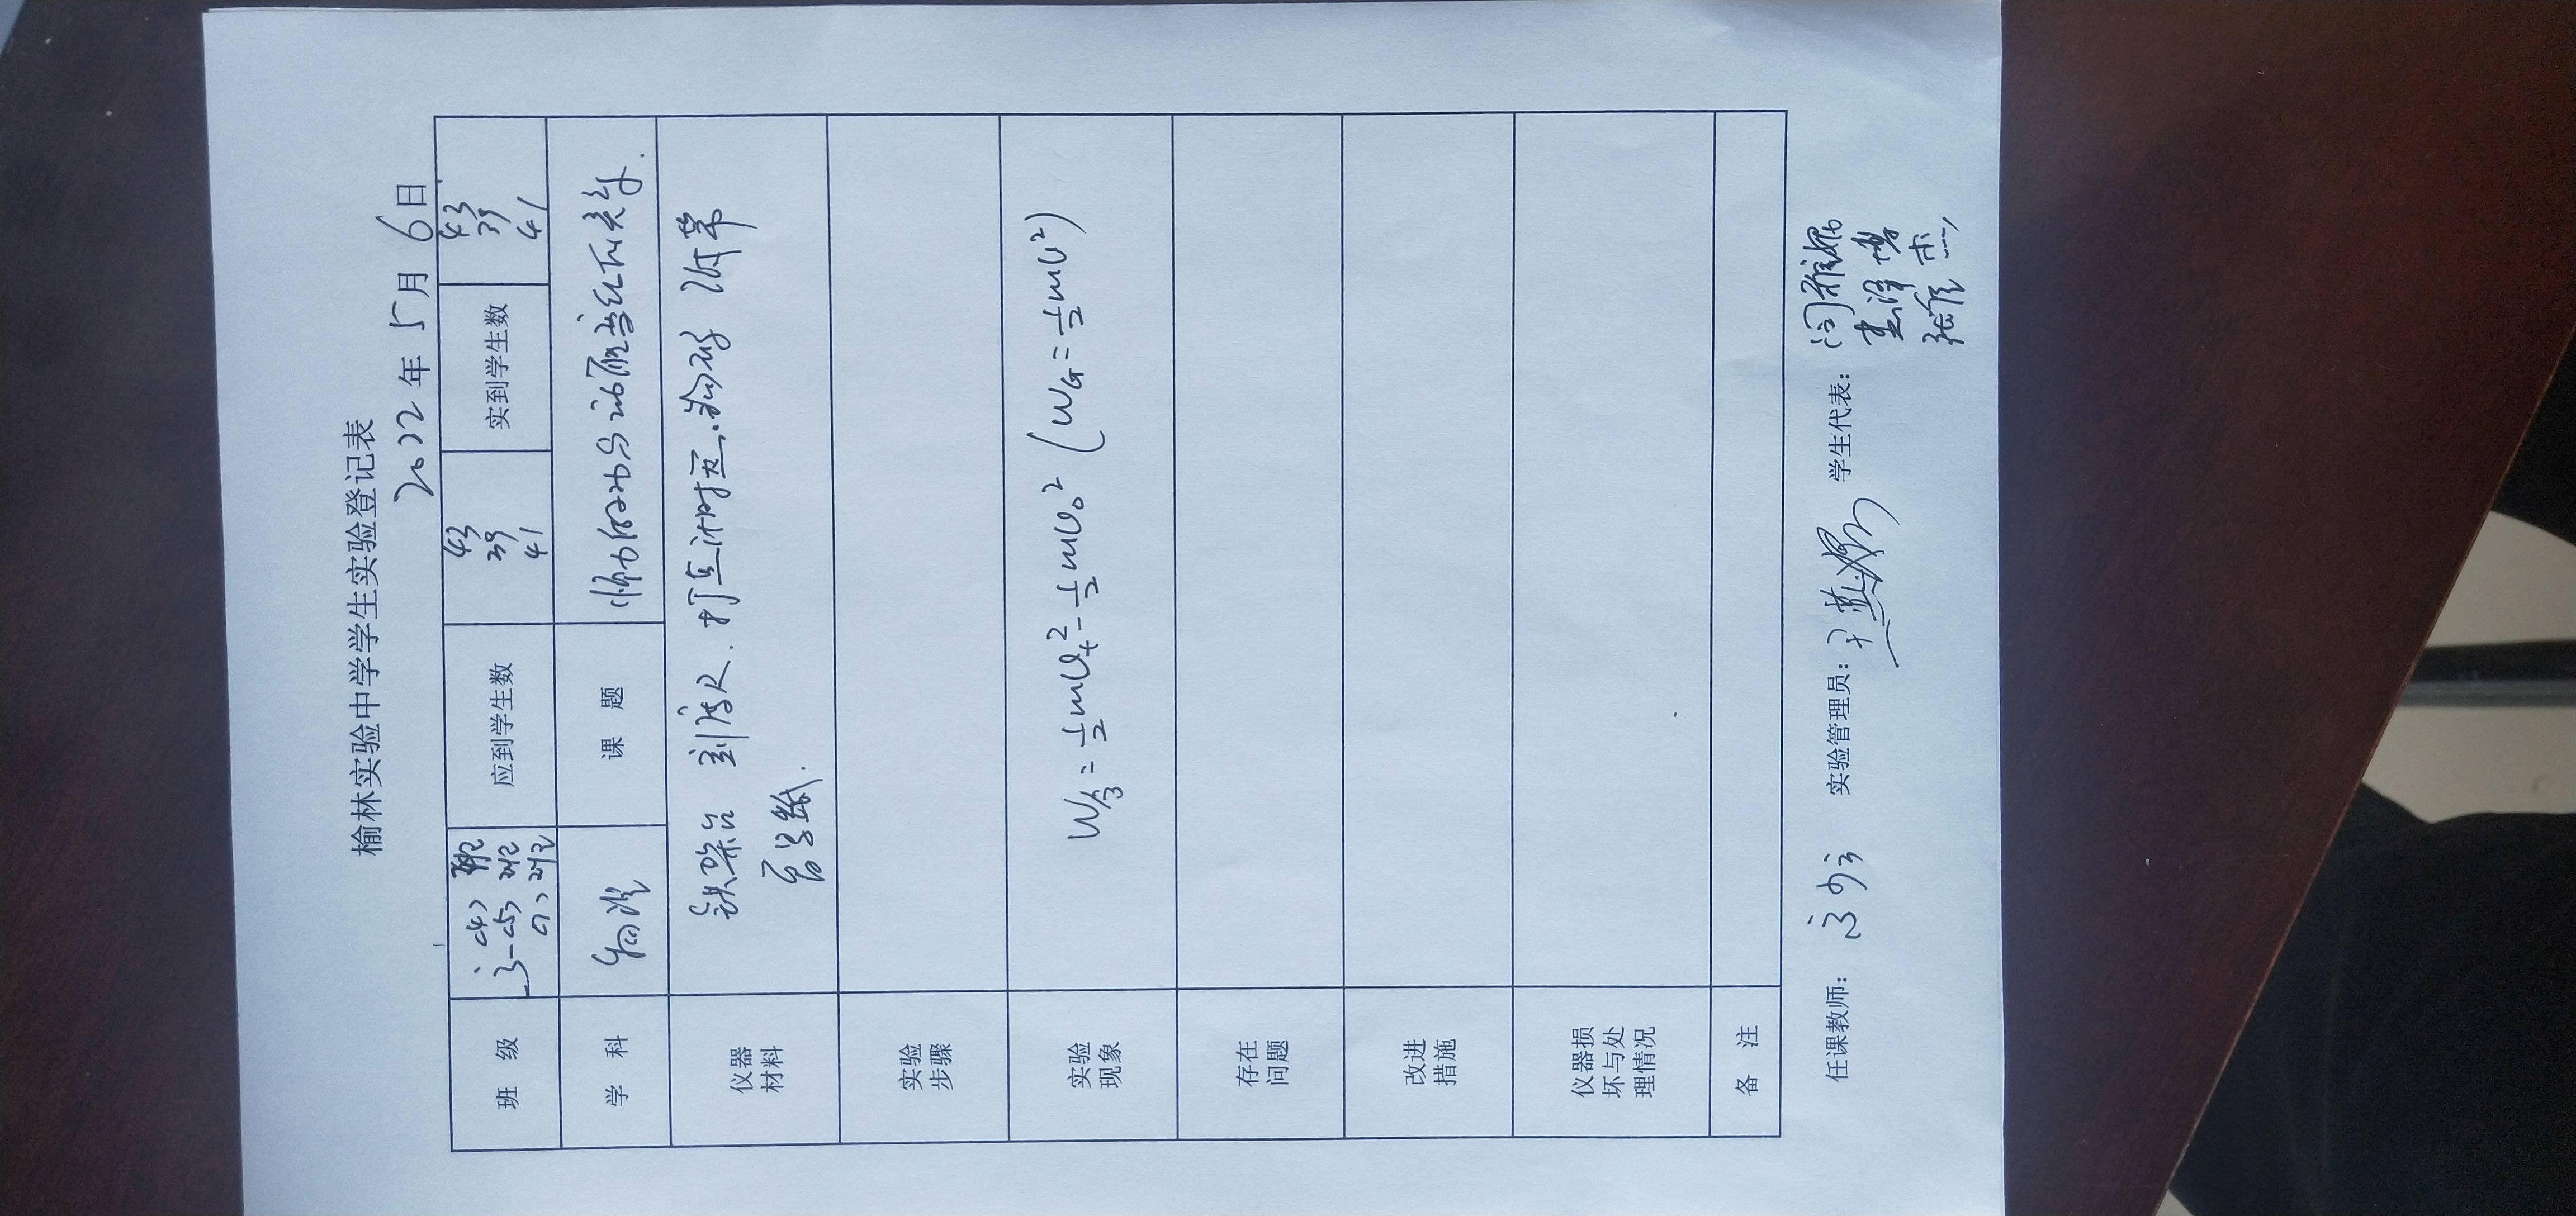 榆林实验中学学生实验登记表
2022年5月6日
班 级
高一(4)班
(5)班
(7)班
应到学生数
43
39
41
实到学生数
43
39
41
学 科
物理
课 题
做功与动能变化的关系.
仪器
材料
铁架台 刻度尺. 打点计时器. 纸带
复写纸.
实验
步骤
实验
现象
W = ½mv_t² - ½mv₀² (W_G = ½mv²)
存在
问题
改进
措施
仪器损
坏与处
理情况
备 注
任课教师: 实验管理员: 学生代表: 闫雅娜